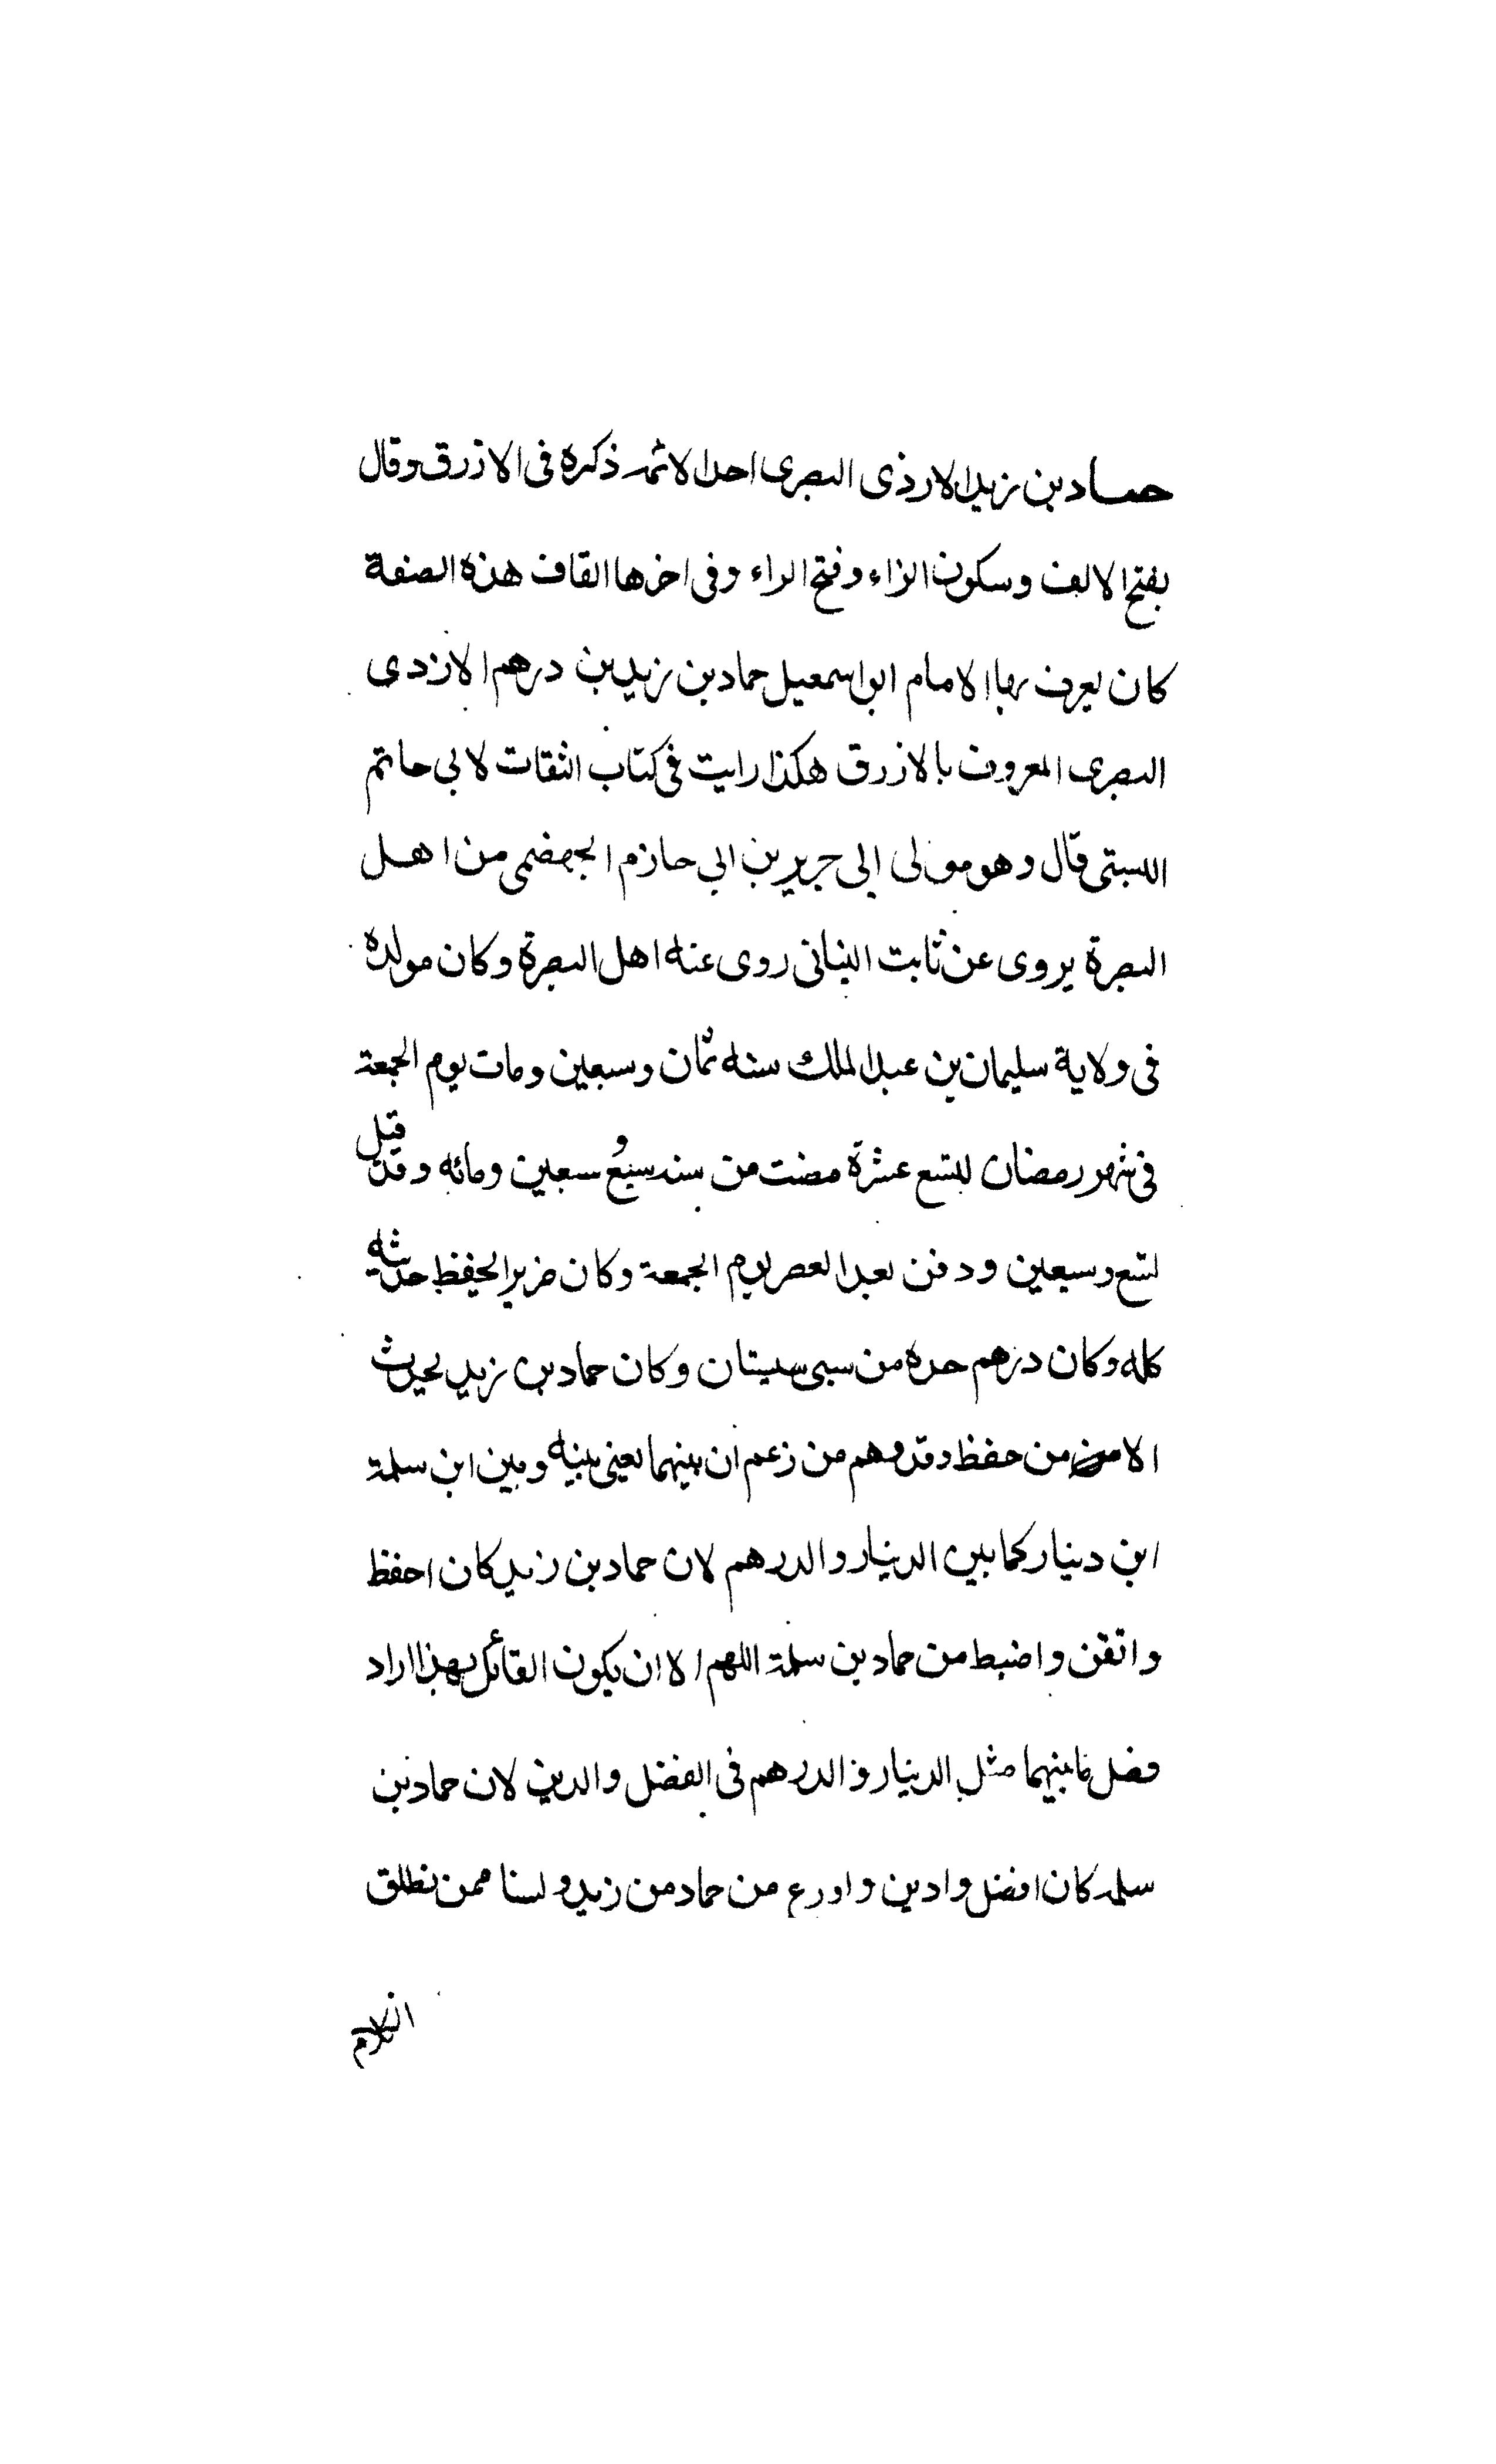 حماد بن زيد الارذى البصرى احد الائمه ذكره فى الازرق وقال
بفتح الالف وسكون الزاء وفتح الراء وفى اخرها القاف هذه الصفة
كان يعرف بها الامام ابو اسمعيل حماد بن زيد بن درهم الازدى
البصرى المعروف بالازرق هكذا رايت فى كتاب الثقات لابى حاتم
البستى قال وهو مولى ابى جرير بن ابى حازم الجهضمى من اهل
البصرة يروى عن ثابت البنانى روى عنه اهل البصرة وكان مولده
فى ولاية سليمان بن عبد الملك سنه ثمان وسبعين ومات يوم الجمعة
فى شهر رمضان لتسع عشرة مضت من سنه سبع و سبعين ومائه وقد قيل
لتسع وسبعين ودفن بعد العصر يوم الجمعة وكان ضرير الحفظ حديثه
كله وكان درهم جده من سبى سجستان وكان حماد بن زيد يحدث
الا من حفظ وقد وهم من زعم ان بينهما يعنى بينه وبين ابن سلمة
ابن دينار كما بين الدينار والدرهم لان حماد بن زيد كان احفظ
واتقن واضبط من حماد بن سلمة اللهم الا ان يكون القائل بهذا اراد
فضل ما بينهما مثل الدينار والدرهم فى الفضل والدين لان حماد بن
سلمه كان افضل وادين واورع من حماد من زيد ولسنا ممن نطلق
الكلام